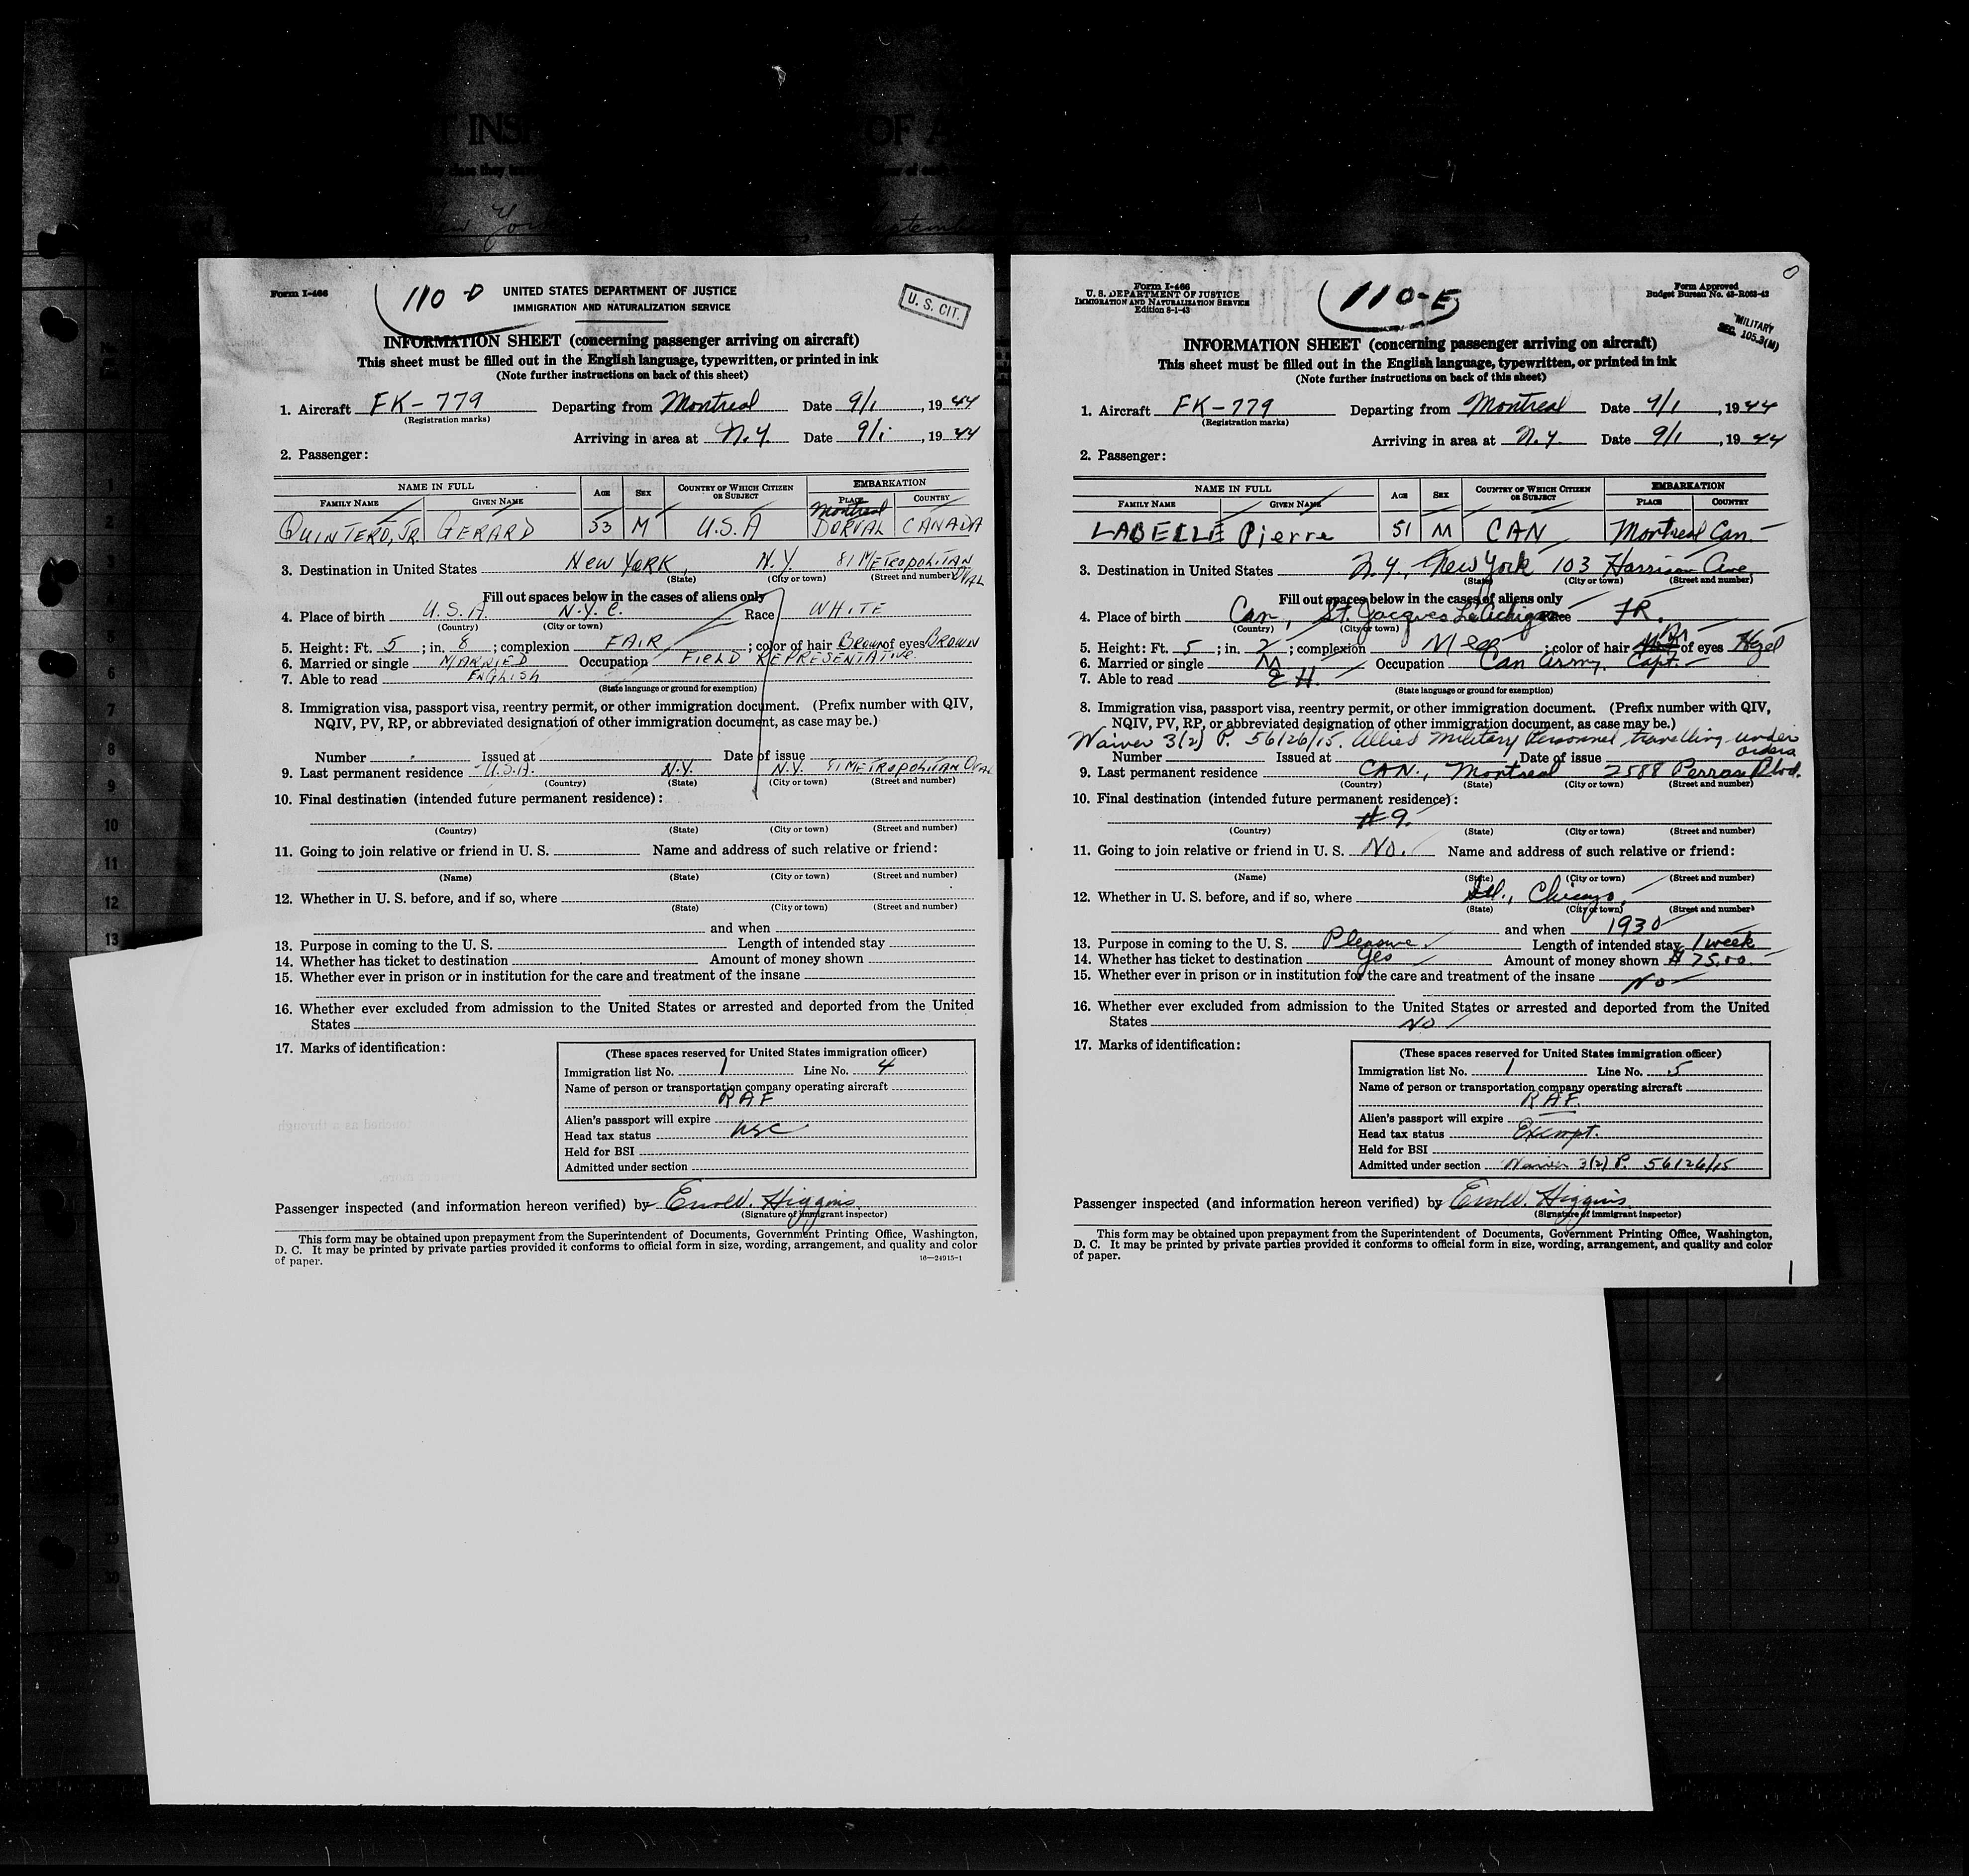 T INS
OF A
New York
Form I-466
110-D
UNITED STATES DEPARTMENT OF JUSTICE
IMMIGRATION AND NATURALIZATION SERVICE
U. S. CIT.
INFORMATION SHEET (concerning passenger arriving on aircraft)
This sheet must be filled out in the English language, typewritten, or printed in ink
(Note further instructions on back of this sheet)
1. Aircraft FK-779 Departing from Montreal Date 9/1, 1944
(Registration marks)
Arriving in area at N.Y. Date 9/1, 1944
2. Passenger:
NAME IN FULL AGE SEX COUNTRY OF WHICH CITIZEN OR SUBJECT EMBARKATION
FAMILY NAME GIVEN NAME PLACE COUNTRY
Montreal
QUINTERO, JR. GERARD 53 M U.S.A DORVAL CANADA
3. Destination in United States NEW YORK, N.Y. 81 METROPOLITAN OVAL
(State) (City or town) (Street and number)
Fill out spaces below in the cases of aliens only
4. Place of birth U.S.A. N.Y.C. Race WHITE
(Country) (City or town)
5. Height: Ft. 5; in. 8; complexion FAIR; color of hair BROWN of eyes BROWN
6. Married or single MARRIED Occupation FIELD REPRESENTATIVE
7. Able to read ENGLISH
(State language or ground for exemption)
8. Immigration visa, passport visa, reentry permit, or other immigration document. (Prefix number with QIV,
NQIV, PV, RP, or abbreviated designation of other immigration document, as case may be.)
Number Issued at Date of issue
9. Last permanent residence U.S.A. N.Y. N.Y. 81 METROPOLITAN OVAL
(Country) (State) (City or town) (Street and number)
10. Final destination (intended future permanent residence):
(Country) (State) (City or town) (Street and number)
11. Going to join relative or friend in U. S. Name and address of such relative or friend:
(Name) (State) (City or town) (Street and number)
12. Whether in U. S. before, and if so, where
(State) (City or town) (Street and number)
and when
13. Purpose in coming to the U. S. Length of intended stay
14. Whether has ticket to destination Amount of money shown
15. Whether ever in prison or in institution for the care and treatment of the insane
16. Whether ever excluded from admission to the United States or arrested and deported from the United
States
17. Marks of identification:
(These spaces reserved for United States immigration officer)
Immigration list No. 1 Line No. 4
Name of person or transportation company operating aircraft
RAF
Alien's passport will expire
Head tax status USC
Held for BSI
Admitted under section
Passenger inspected (and information hereon verified) by Errol W. Higgins
(Signature of immigrant inspector)
This form may be obtained upon prepayment from the Superintendent of Documents, Government Printing Office, Washington,
D. C. It may be printed by private parties provided it conforms to official form in size, wording, arrangement, and quality and color
of paper.
16—24915-1
Form I-466
U. S. DEPARTMENT OF JUSTICE
IMMIGRATION AND NATURALIZATION SERVICE
Edition 8-1-43
110-E
Form Approved
Budget Bureau No. 43-R063-42
MILITARY
SEC. 105.3(M)
INFORMATION SHEET (concerning passenger arriving on aircraft)
This sheet must be filled out in the English language, typewritten, or printed in ink
(Note further instructions on back of this sheet)
1. Aircraft FK-779 Departing from Montreal Date 9/1, 1944
(Registration marks)
Arriving in area at N.Y. Date 9/1, 1944
2. Passenger:
NAME IN FULL AGE SEX COUNTRY OF WHICH CITIZEN OR SUBJECT EMBARKATION
FAMILY NAME GIVEN NAME PLACE COUNTRY
LABELLE Pierre 51 M CAN Montreal Can.
3. Destination in United States N.Y., New York 103 Harrison Ave
(State) (City or town) (Street and number)
Fill out spaces below in the cases of aliens only
4. Place of birth Can, St. Jacques L'Achigan Race FR.
(Country) (City or town)
5. Height: Ft. 5; in. 2; complexion Med; color of hair Br of eyes Hazel
6. Married or single M Occupation Can Army. Capt.
7. Able to read E H.
(State language or ground for exemption)
8. Immigration visa, passport visa, reentry permit, or other immigration document. (Prefix number with QIV,
NQIV, PV, RP, or abbreviated designation of other immigration document, as case may be.)
Waiver 3(2) P. 56126/15. Allied Military Personnel travelling under orders
Number Issued at Date of issue
9. Last permanent residence CAN., Montreal 2588 Perras Blvd.
(Country) (State) (City or town) (Street and number)
10. Final destination (intended future permanent residence):
#9.
(Country) (State) (City or town) (Street and number)
11. Going to join relative or friend in U. S. No. Name and address of such relative or friend:
(Name) (State) (City or town) (Street and number)
12. Whether in U. S. before, and if so, where Ill., Chicago,
(State) (City or town) (Street and number)
and when 1930
13. Purpose in coming to the U. S. Pleasure. Length of intended stay 1 week
14. Whether has ticket to destination Yes Amount of money shown $75.00.
15. Whether ever in prison or in institution for the care and treatment of the insane No
16. Whether ever excluded from admission to the United States or arrested and deported from the United
States No
17. Marks of identification:
(These spaces reserved for United States immigration officer)
Immigration list No. 1 Line No. 5
Name of person or transportation company operating aircraft
RAF.
Alien's passport will expire
Head tax status Exempt.
Held for BSI
Admitted under section Waiver 3(2) P. 56126/15
Passenger inspected (and information hereon verified) by Errol W. Higgins
(Signature of immigrant inspector)
This form may be obtained upon prepayment from the Superintendent of Documents, Government Printing Office, Washington,
D. C. It may be printed by private parties provided it conforms to official form in size, wording, arrangement, and quality and color
of paper.